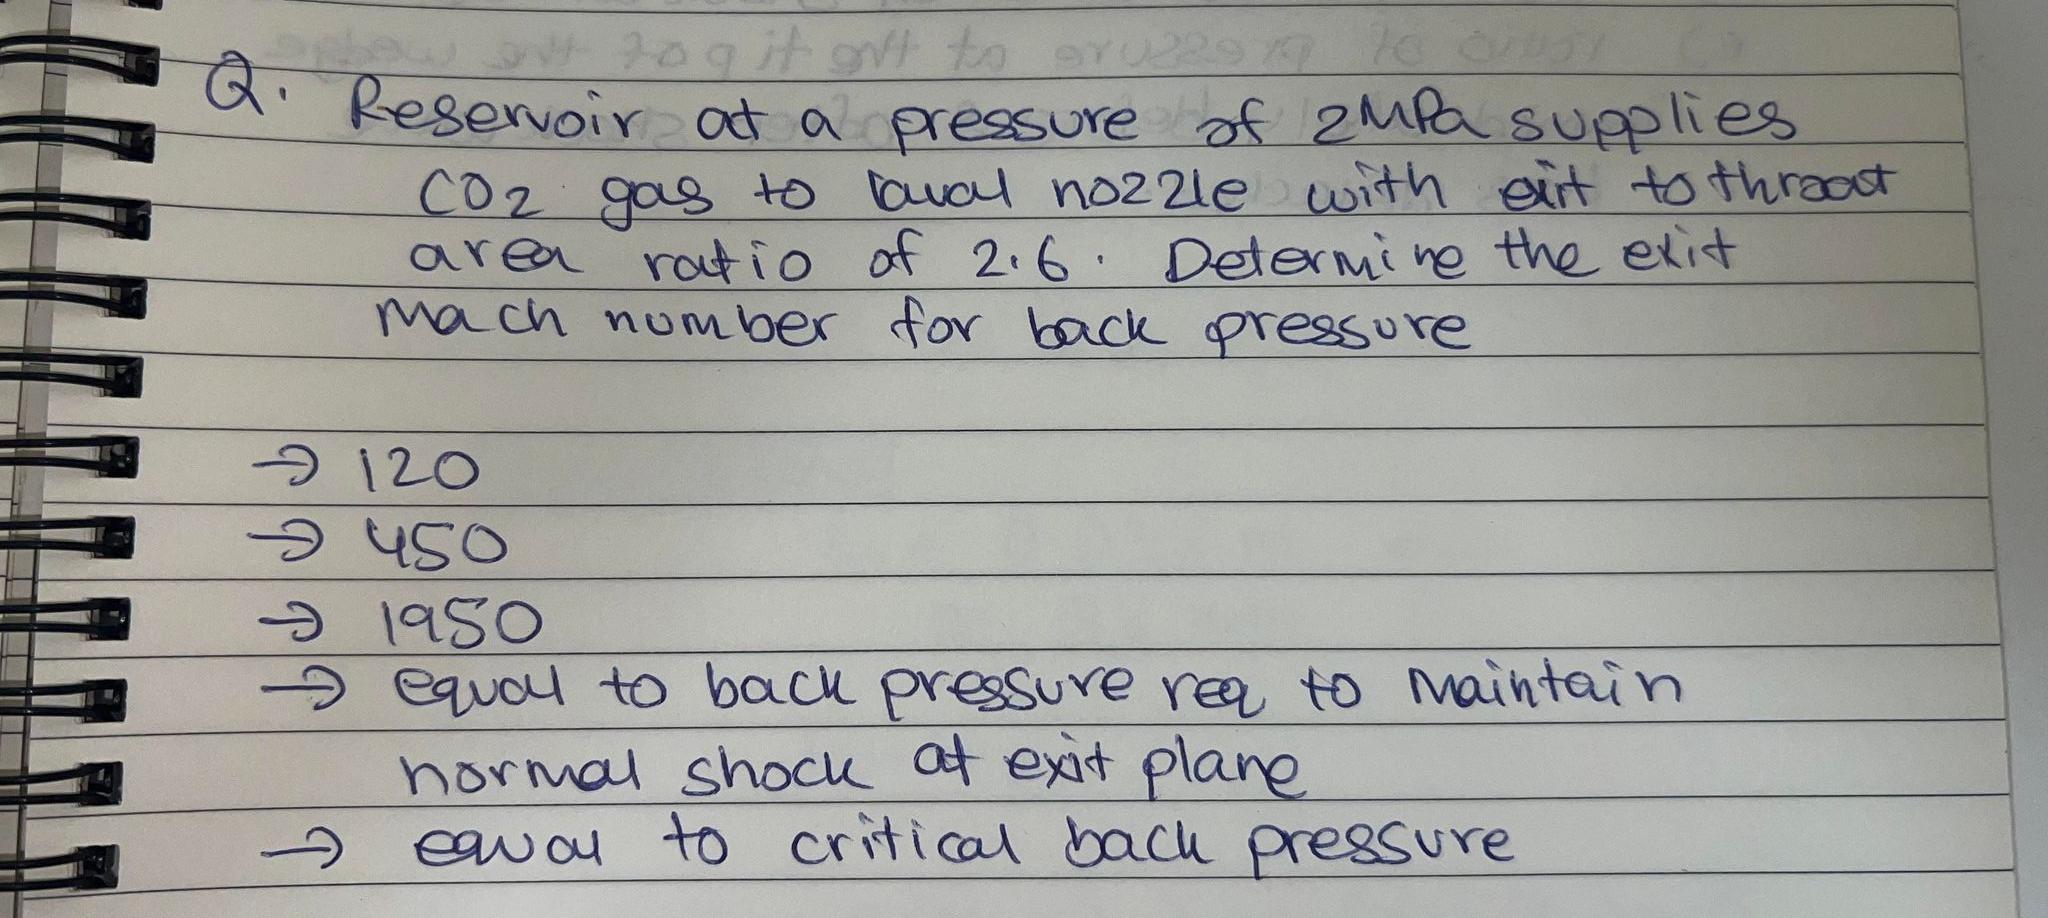 Q. Reservoir at a pressure of 2MPa supplies
CO2 gas to laval nozzle with exit to throat
area ratio of 2.6. Determine the exit
Mach number for back pressure
→ 120
→ 450
→ 1950
→ equal to back pressure req to maintain
normal shock at exit plane
→ equal to critical back pressure